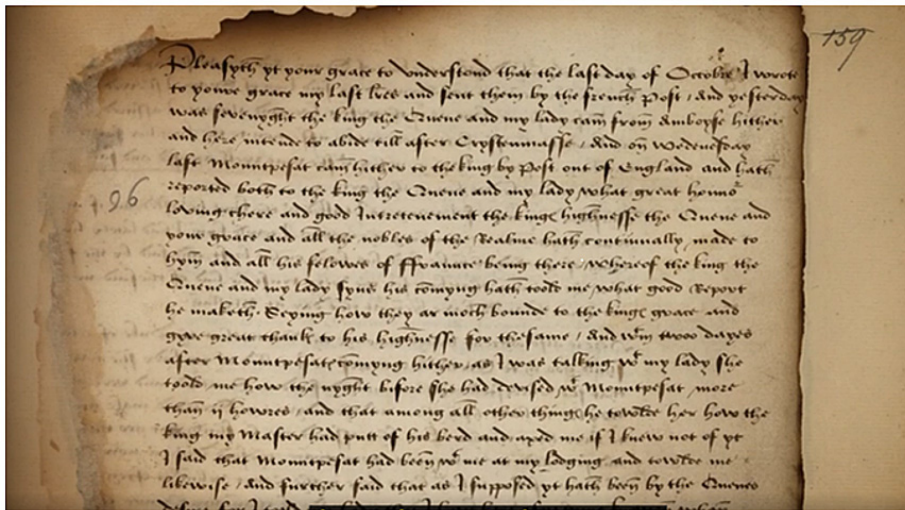 159
Pleasyth yt your grace to understond that the last day of Octobre I wrote
to youre grace my last lres and sent them by the french Post / And yesterday
was sevenyght the king the Quene and my lady cam from Amboyse hither
and here intende to abide till after Crystenmasse / And on Wedenesday
last Mountpesat cam hither to the king by Post out of England and hath
96
reported both to the king the Quene and my lady what great honor
loving chere and good Intretenement the kings highnesse the Quene and
your grace and all the nobles of the Realme hath continually made to
hym and all his felowes of ffraunce being there / whereof the king the
Quene and my lady syns his comyng hath toold me what good Report
he maketh. Seying how they ar moch bounde to the kings grace and
gyve great thanks to his highnesse for the same / And wtin twoo dayes
after Mountpesats comyng hither, as I was talking wt my lady she
toold me how the nyght bifore she had devised wt Mountpesat more
than ij howres and that among all other things he towlde her how the
king my Master had putt of his berd and axed me if I knew not of yt
I said that Mountpesat had been wt me at my lodging and towlde me
likewise / And further said that as I supposed yt hath been by the Quenes
desire for I told